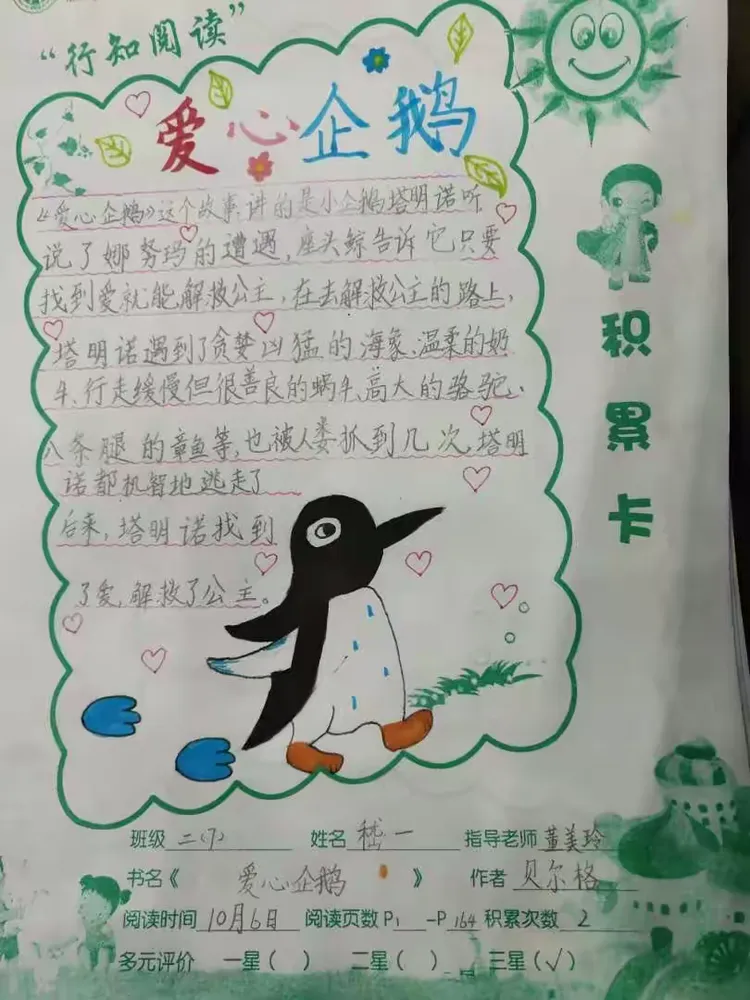 “行知阅读”
爱心企鹅
《爱心企鹅》这个故事,讲的是小企鹅塔明诺听
说了娜努玛的遭遇,座头鲸告诉它只要
找到爱就能解救公主,在去解救公主的路上,
塔明诺遇到了贪婪凶猛的海象、温柔的奶
牛、行走缓慢但很善良的蜗牛、高大的骆驼、
八条腿的章鱼等,也被人类抓到几次,塔明
诺都机智地逃走了
后来,塔明诺找到
了爱,解救了公主。
积累卡
班级 二(7) 姓名 嵇一 指导老师 董美玲
书名《 爱心企鹅 》 作者 贝尔格
阅读时间 10月6日 阅读页数 P1 -P164 积累次数 2
多元评价 一星( ) 二星( ) 三星(√)